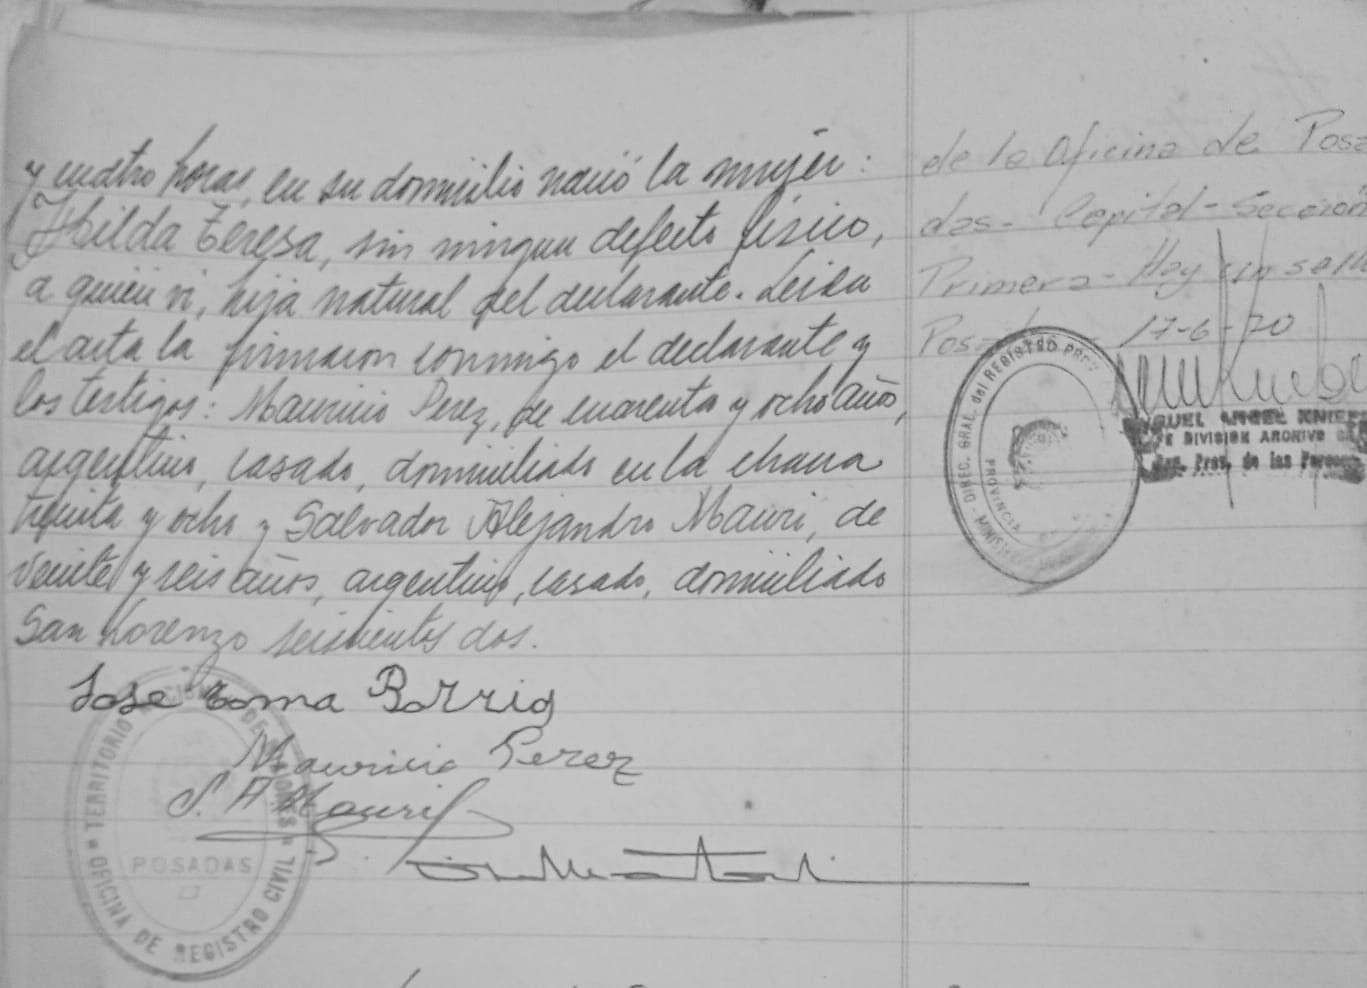 y cuatro horas, en su domicilio nació la mujer:
Hilda Teresa, sin ningun defecto físico,
a quien vi, hija natural del declarante. Leida
el acta la firmaron conmigo el declarante y
los testigos: Mauricio Perez, de cuarenta y ocho años,
argentino, casado, domiciliado en la chacra
treinta y ocho y Salvador Alejandro Mauri, de
veinte y seis años, argentino, casado, domiciliado
San Lorenzo seiscientos dos.
Jose Toma
Mauricio Perez
S. A. Mauri
OFICINA DE REGISTRO CIVIL
TERRITORIO NACIONAL DE MISIONES
POSADAS
de la Oficina de Posa
das- Capital- Sección
Primera- Hay un sello
17-6-70
DIREC. GRAL. del REGISTRO PROV.
PROVINCIA
MIGUEL ANGEL
DIVISION ARCHIVO
Prov. de las Personas